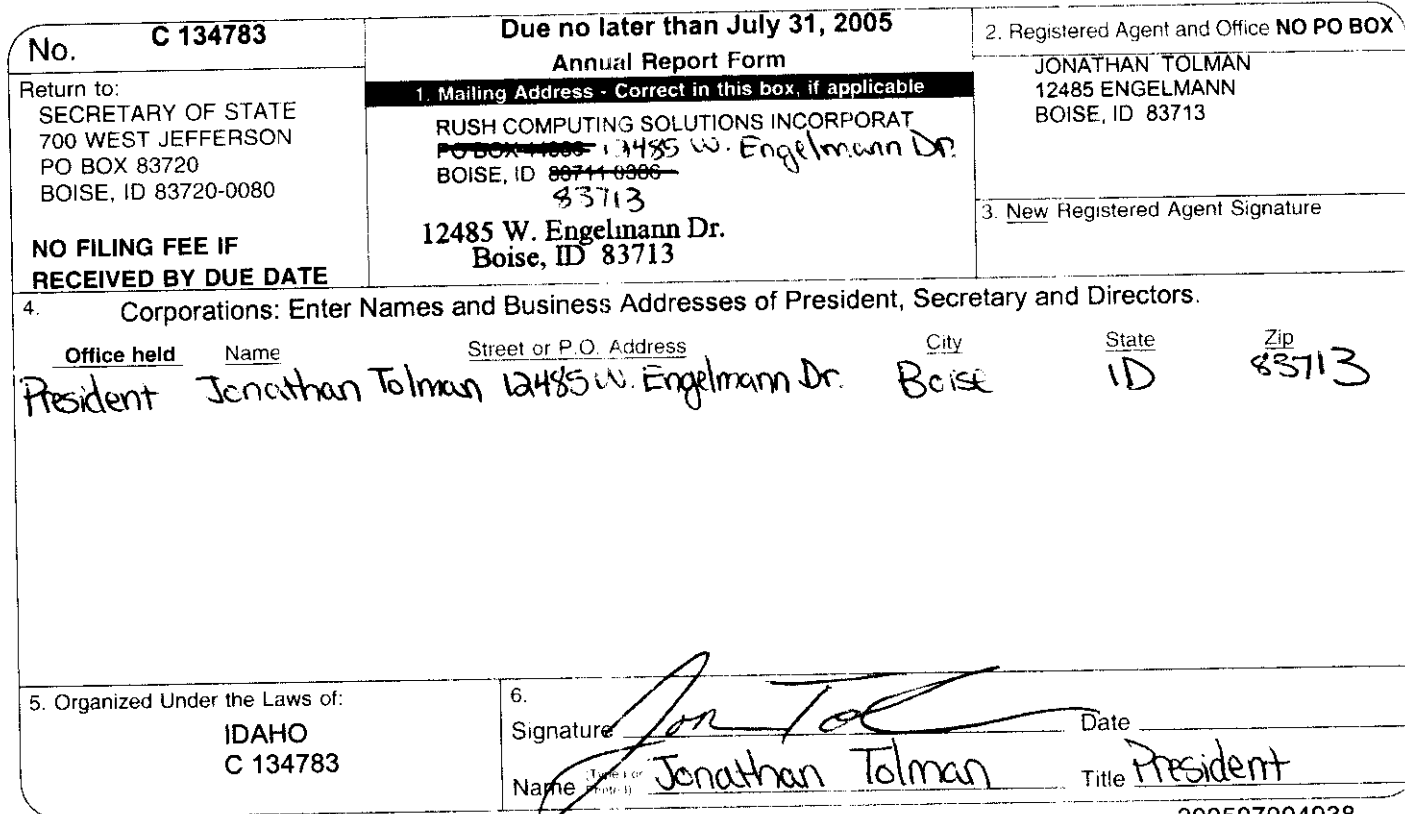 No. C 134783
Return to:
SECRETARY OF STATE
700 WEST JEFFERSON
PO BOX 83720
BOISE, ID 83720-0080
NO FILING FEE IF
RECEIVED BY DUE DATE
Due no later than July 31, 2005
Annual Report Form
1. Mailing Address - Correct in this box, if applicable
RUSH COMPUTING SOLUTIONS INCORPORAT
PO BOX 12485 W. Engelmann Dr.
BOISE, ID
83713
12485 W. Engelmann Dr.
Boise, ID 83713
2. Registered Agent and Office NO PO BOX
JONATHAN TOLMAN
12485 ENGELMANN
BOISE, ID 83713
3. New Registered Agent Signature
4. Corporations: Enter Names and Business Addresses of President, Secretary and Directors.
Office held Name Street or P.O. Address City State Zip
President Jonathan Tolman 12485 W. Engelmann Dr. Boise ID 83713
5. Organized Under the Laws of:
IDAHO
C 134783
6.
Signature Jon Tol Date
Name (Type or Printed) Jonathan Tolman Title President